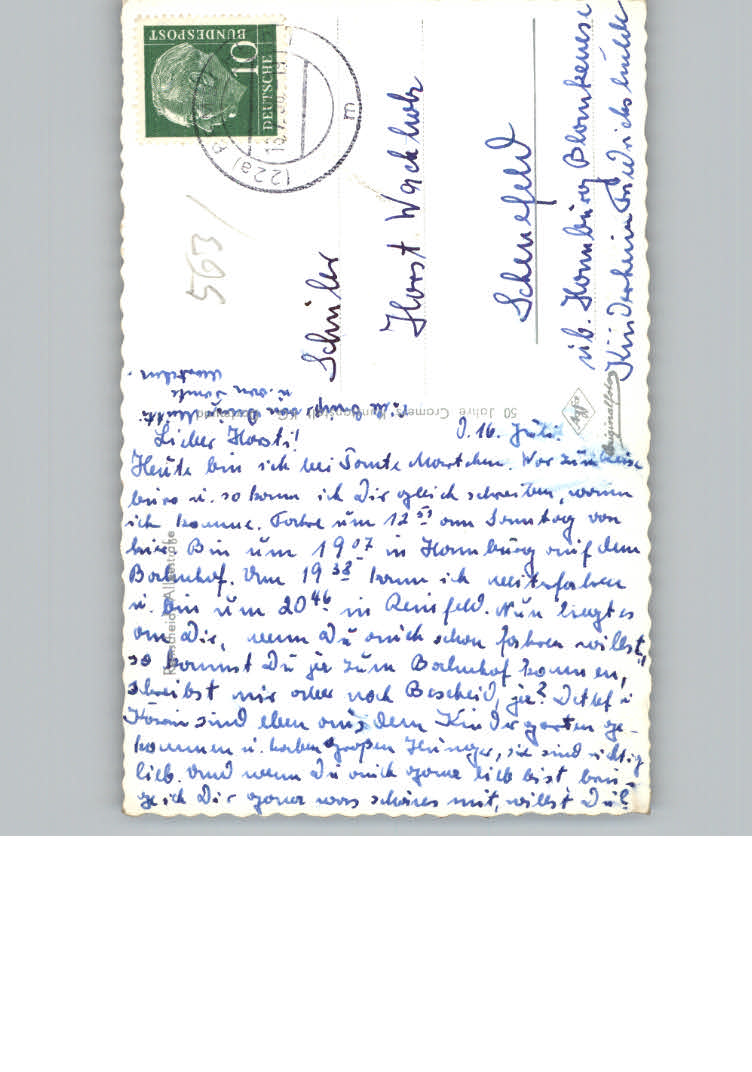 Lieber Horsti!
D. 16. Juli.
Heute bin ich bei Tante Martchen. War zum Reise
büro u. so kann ich Dir gleich schreiben, wann
ich komme. Fahre um 12 53 am Sonntag von
hier. Bin um 19 07 in Hamburg auf dem
Bahnhof. Um 19 38 kann ich weiterfahren
u. bin um 20 46 in Reinsfeld. Nun liegt es
an Dir, wenn Du auch schon fahren willst,
so kommst Du ja zum Bahnhof kommen,
schreibst mir aber noch Bescheid, ja? Detlef u.
Karin sind eben aus dem Kindergarten ge-
kommen u. haben großen Hunger, sie sind richtig
lieb. Und wenn Du auch ganz lieb bist brin-
ge ich Dir ganz was schönes mit, willst Du?
Viele Grüße von Deiner Mutti.
u. von Tante
Martchen
Schüler
Horst Wachholz
Schenefeld
üb. Hamburg Blankenese
Kinderheim Friedrichshulde
563/
DEUTSCHE
BUNDESPOST
10
(22a)
m
50 Jahre Cramers Kunstanstalt KG
Agfa
Originalfoto
Remscheid, Alleestraße